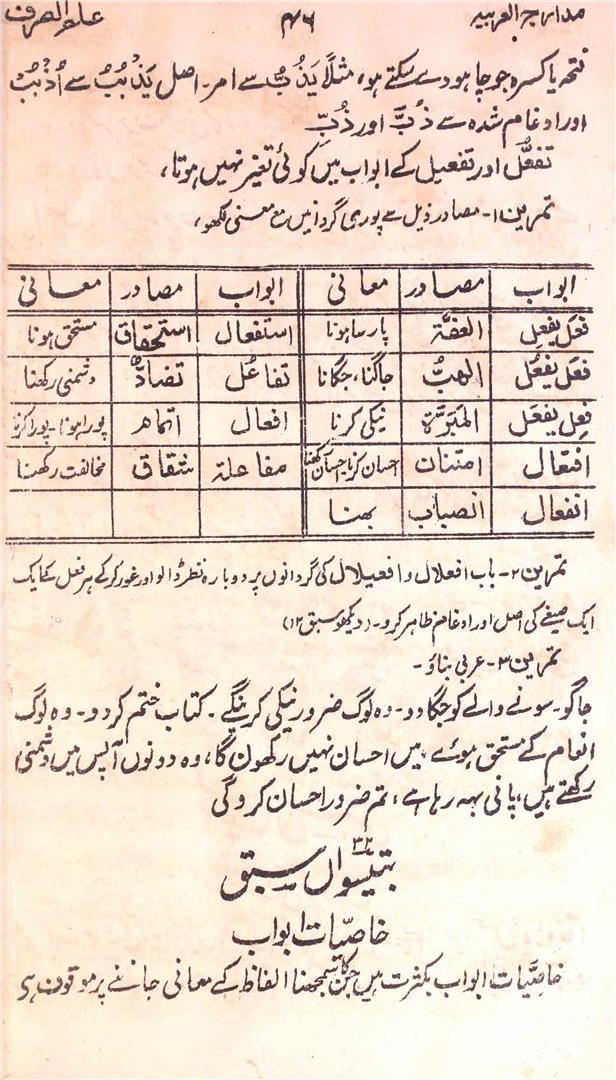 مدارج العربیہ ۴۶ علم الصرف
فتحہ یا کسرہ جو چاہو دے سکتے ہو، مثلاً یَذُبُّ سے امر۔ اصل یَذْبُبُ سے اُذْبُبْ
اور ادغام شدہ سے ذُبَّ اور ذُبِّ
تفعُّل اور تفعیل کے ابواب میں کوئی تغیر نہیں ہوتا،
تمرین ۱۔ مصادر ذیل سے پوری گردانیں مع معنی لکھو،
ابواب مصادر معانی ابواب مصادر معانی
فعَل یفعِل العفّة پارسا ہونا استفعال استحقاق مستحق ہونا
فعَل یفعُل الھبُّ جاگنا، جگانا تفاعُل تضادٌّ دشمنی رکھنا
فعِل یفعَل المَبَرَّة نیکی کرنا افعال اتمام پورا ہونا۔ پورا کرنا
افتعال امتنان احسان کرنا، احسان رکھنا مفاعلة شقاق مخالفت رکھنا
انفعال انصباب بہنا
تمرین ۲۔ باب افعلال و افعیلال کی گردانوں پر دوبارہ نظر ڈالو اور غور کر کے ہر فعل کے ایک
ایک صیغے کی اصل اور ادغام ظاہر کرو۔ (دیکھو سبق ۱۲)
تمرین ۳۔ عربی بناؤ۔
جاگو۔ سونے والے کو جگا دو۔ وہ لوگ ضرور نیکی کرینگے۔ کتاب ختم کر دو۔ وہ لوگ
انعام کے مستحق ہوئے، میں احسان نہیں رکھون گا، وہ دونوں آپس میں (دشمنی)
رکھتے ہیں، پانی بہہ رہا ہے، تم ضرور احسان کرو گی
۳۲
بتیسواں سبق
خاصیّات ابواب
خاصیّات ابواب بکثرت ہیں جن کا سمجھنا الفاظ کے معانی جاننے پر موقوف ہی